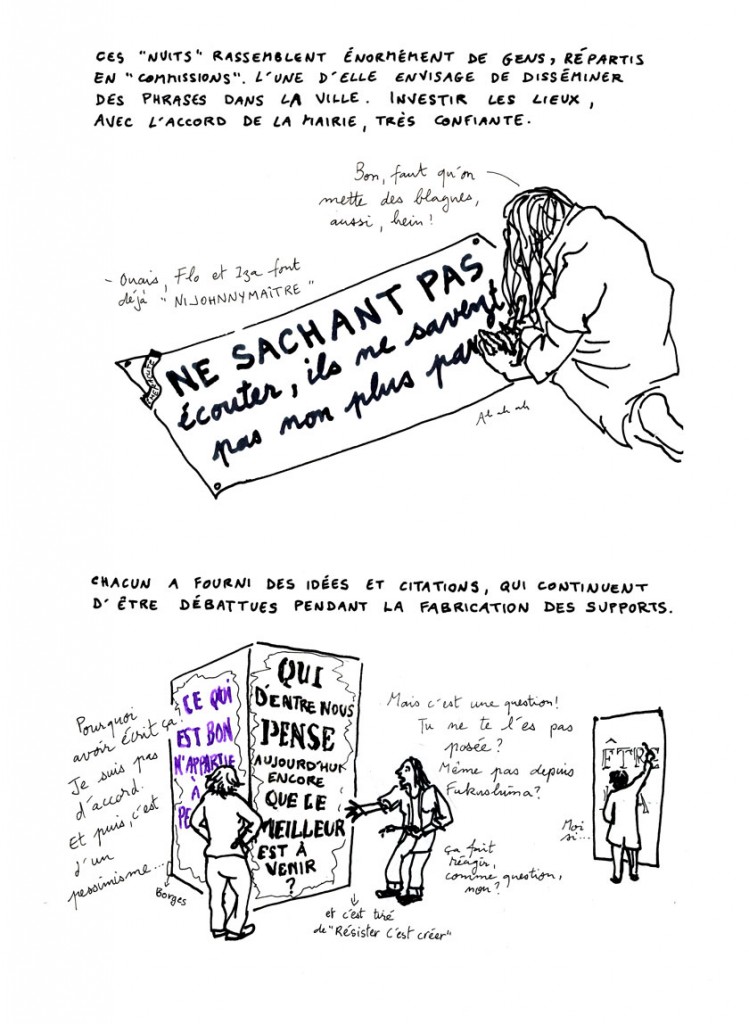 CES "NUITS" RASSEMBLENT ÉNORMÉMENT DE GENS, RÉPARTIS
EN "COMMISSIONS". L'UNE D'ELLE ENVISAGE DE DISSÉMINER
DES PHRASES DANS LA VILLE. INVESTIR LES LIEUX,
AVEC L'ACCORD DE LA MAIRIE, TRÈS CONFIANTE.
Bon, faut qu'on
mette des blagues,
aussi, hein!
- Ouais, Flo et Iza font
déjà "NIJOHNNYMAÎTRE"
NE SACHANT PAS
écouter, ils ne savent
pas non plus par
Ah ah ah
CHACUN A FOURNI DES IDÉES ET CITATIONS, QUI CONTINUENT
D'ÊTRE DÉBATTUES PENDANT LA FABRICATION DES SUPPORTS.
Pourquoi
avoir écrit ça!
Je suis pas
d'accord.
Et puis, c'est
d'un
pessimisme...
CE QUI
EST BON
N'APPARTIE
À
PE
Borges
QUI
D'ENTRE NOUS
PENSE
AUJOURD'HUI
ENCORE
QUE LE
MEILLEUR
EST À
VENIR
?
et c'est tiré
de "Résister c'est créer"
Mais c'est une question!
Tu ne te l'es pas
posée?
Même pas depuis
Fukushima?
ça fait
réagir,
comme question,
non?
Moi
si...
ÊTRE